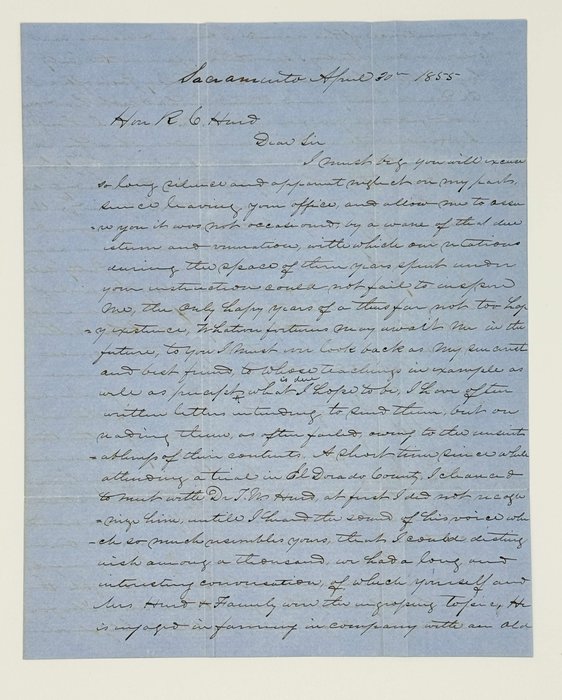 Sacramento April 30th 1855
Hon R. C. Hurd
Dear Sir
I must beg you will excuse
so long silence and apparent neglect on my part,
since leaving your office, and allow me to assu
-re you it was not occasioned, by a want of that due
esteem and veneration, with which our relations
during the space of three years spent under
your instruction could not fail to inspire
me, the only happy years of a thus far not too hap
-y existence, Whatever fortunes may await me in the
future, to you I must ever look back as my sincerest
and best friend, to whose teachings in example as
well as precept, what is due I hope to be, I have often
written letters intending to send them, but on
reading them, as often failed, owing to the unsuit
-ableness of their contents. A short time since while
attending a trial in El Dorado County, I chanced
to meet with Dr. T. M. Hurd, at first I did not recog
-nize him, untill I heard the sound of his voice whi
-ch so much resembles yours, that I could disting
uish among a thousand, we had a long and
interesting conversation, of which yourself and
Mrs Hurd & Family were the ingrossing topic, He
is engaged in farming in company with an old